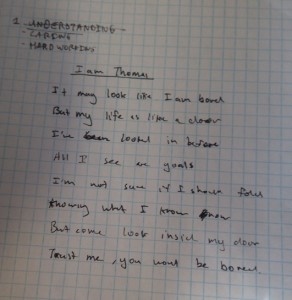 1. UNDERSTANDING
- CARING
- HARD WORKING
I am Thomas
It may look like I am bored
But my life is like a door
I've been looked in before
All I see are goals
I'm not sure if I
Knowing what I know now
But come look inside my door
Trust me, you wont be bored.